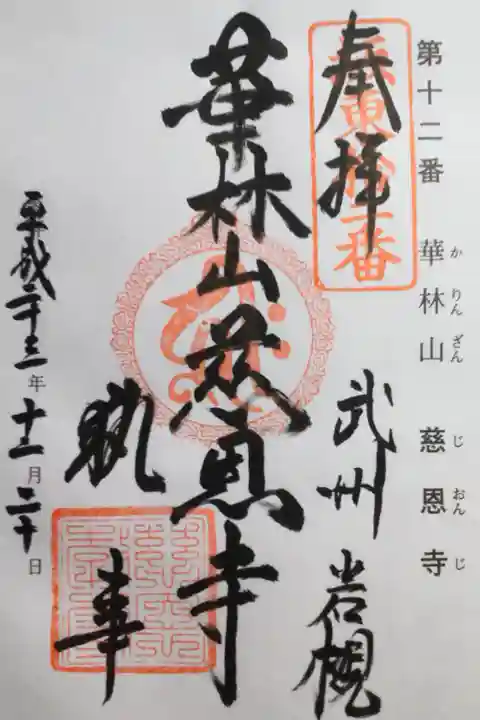 第十二番 華林山 慈恩寺
か りん ざん じ おん じ
奉拝
坂東拾二番
武州 岩槻
華林山慈恩寺
執事
平成二十三年十二月二十日